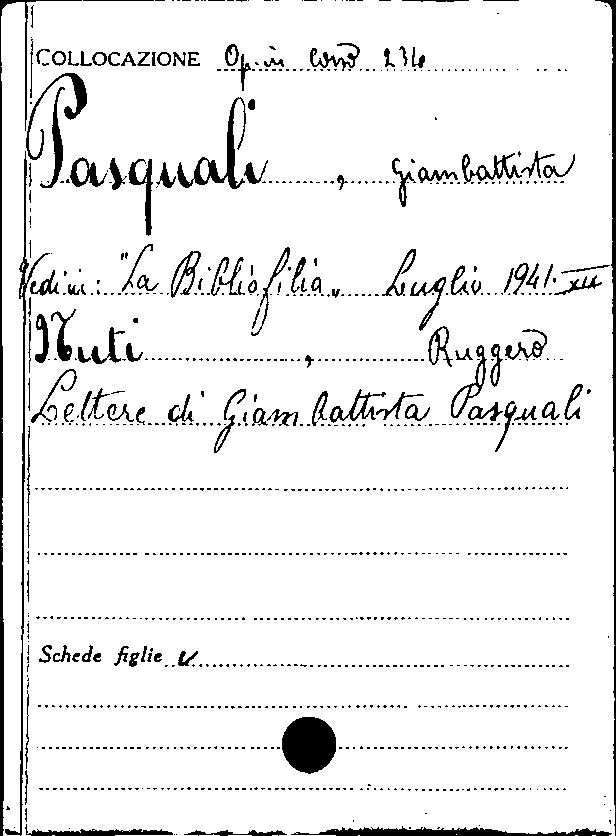 COLLOCAZIONE Op. in corso 234
Pasquali, Giambattista
Vedi in: "La Bibliofilia" Luglio 1941-XIX
Nuti, Ruggero
Lettere di Giambattista Pasquali
Schede figlie